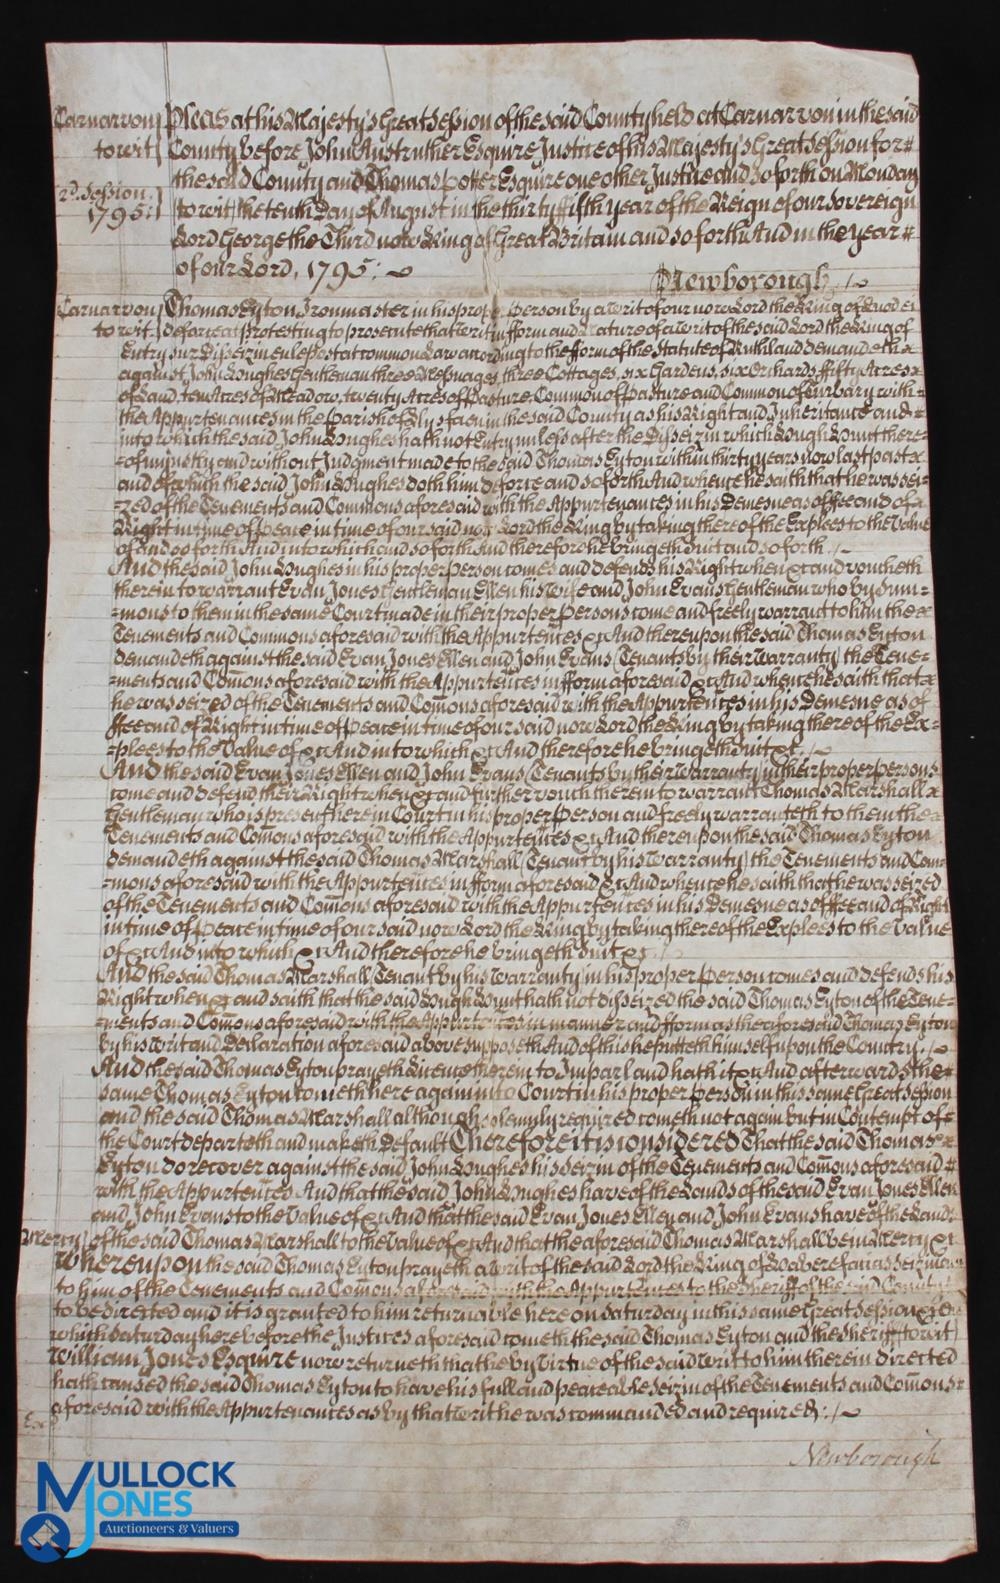 Carnarvon } Pleas at his Majesty's Great Session of the said County held at Carnarvon in the said
to wit } County before John Anstruther Esquire Justice of his Majesty's Great Session for
2d. Session } the said County and Thomas Potter Esquire one other Justice and so forth on Monday
1795: } to wit the tenth Day of August in the thirty fifth year of the Reign of our Sovereign
Lord George the Third now King of Great Britain and so forth And in the year
of our Lord, 1795:
Newborough
Carnarvon } Thomas Eyton Ironmaster in his proper Person by a Writ of our now Lord the King of Quod ei
to wit } deforceat protesting to prosecute that Writ in fform and Nature of a Writ of the said Lord the King of
Entry sur Disseizin en le post at common Law according to the fform of the Statute of Ruthland demandeth
against John Hughes Gentleman three Messuages, three Cottages, six Gardens, six Orchards, fifty Acres
of Land, ten Acres of Meadow, twenty Acres of Pasture Common of Pasture and Common of Turbary with
the Appurtenances in the Parish of Llysfaen in the said County as his Right and Inheritance and
into which the said John Hughes hath not Entry unless after the Disseizin which Hugh Hunt there=
=of unjustly and without Judgment made to the said Thomas Eyton within thirty years now last past
and of which the said John Hughes doth him deforce and so forth And whence he saith that he was sei=
=zed of the Tenements and Commons aforesaid with the Appurtenances in his Demesne as of ffee and of
Right in time of Peace in time of our said now Lord the King by taking thereof the Explees to the Value
of and so forth And into which and so forth And therefore he bringeth Suit and so forth
And the said John Hughes in his proper Person comes and defends his Right when &c and voucheth
therein to warrant Evan Jones Gentleman Ellen his Wife and John Evans Gentleman who by Sum=
=mons to them in the same Court made in their proper Persons come and freely warrant to him the
Tenements and Commons aforesaid with the Appurtences &c And thereupon the said Thomas Eyton
demandeth against the said Evan Jones Ellen and John Evans (Tenants by their Warranty) the Tene=
=ments and Comons aforesaid with the Appurtences in fform aforesaid &c And whence he saith that
he was seized of the Tenements and Comons aforesaid with the Appurtences in his Demesne as of
ffee and of Right in time of Peace in time of our said now Lord the King by taking thereof the Ex=
=plees to the Value of &c And into which &c And therefore he bringeth Suit &c.
And the said Evan Jones Ellen and John Evans (Tenants by their Warranty) in their proper Persons
come and defend their Right when &c and further vouch therein to warrant Thomas Marshall
Gentleman who is present here in Court in his proper Person and freely warranteth to them the
Tenements and Comons aforesaid with the Appurtences &c And thereupon the said Thomas Eyton
demandeth against the said Thomas Marshall (Tenant by his Warranty) the Tenements and Com=
=mons aforesaid with the Appurtences in fform aforesaid &c And whence he saith that he was seized
of the Tenements and Comons aforesaid with the Appurtences in his Demesne as of ffee and of Right
in time of Peace in time of our said now Lord the King by taking thereof the Explees to the Value
of &c And into which &c And therefore he bringeth Suit &c
And the said Thomas Marshall Tenant by his Warranty in his proper Person comes and defends his
Right when &c and saith that the said Hugh Hunt hath not disseized the said Thomas Eyton of the Tene=
=ments and Comons aforesaid with the Appurtences in manner and fform as the aforesaid Thomas Eyton
by his Writ and Declaration aforesaid above supposeth And of this he putteth himself upon the Country.
And the said Thomas Eyton prayeth Licence therein to Imparl and hath it &c And afterwards the
same Thomas Eyton cometh here again into Court in his proper Person in this same Great Session
and the said Thomas Marshall although solemnly required cometh not again but in Contempt of
the Court departeth and maketh Default Therefore it is considered That the said Thomas
Eyton do recover against the said John Hughes his Seizin of the Tenements and Comons aforesaid
with the Appurtences And that the said John Hughes have of the Lands of the said Evan Jones Ellen
and John Evans to the Value of &c And that the said Evan Jones Ellen and John Evans have of the Lands
Mercy } of the said Thomas Marshall to the Value of &c And that the aforesaid Thomas Marshall be in Mercy &c
Whereupon the said Thomas Eyton prayeth a Writ of the said Lord the King of Habere facias Seizinam
to him of the Tenements and Comons aforesaid with the Appurtences to the Sheriff of the said County
to be directed and it is granted to him returnable here on Saturday in this same Great Session &c On
which Saturday here before the Justices aforesaid cometh the said Thomas Eyton and the Sheriff (to wit)
William Jones Esquire now returneth that he by Virtue of the said Writ to him therein directed
hath caused the said Thomas Eyton to have his full and peaceable Seizin of the Tenements and Comons
aforesaid with the Appurtenances as by that Writ he was commanded and required:
Ex
Newborough
MULLOCK
JONES
Auctioneers & Valuers